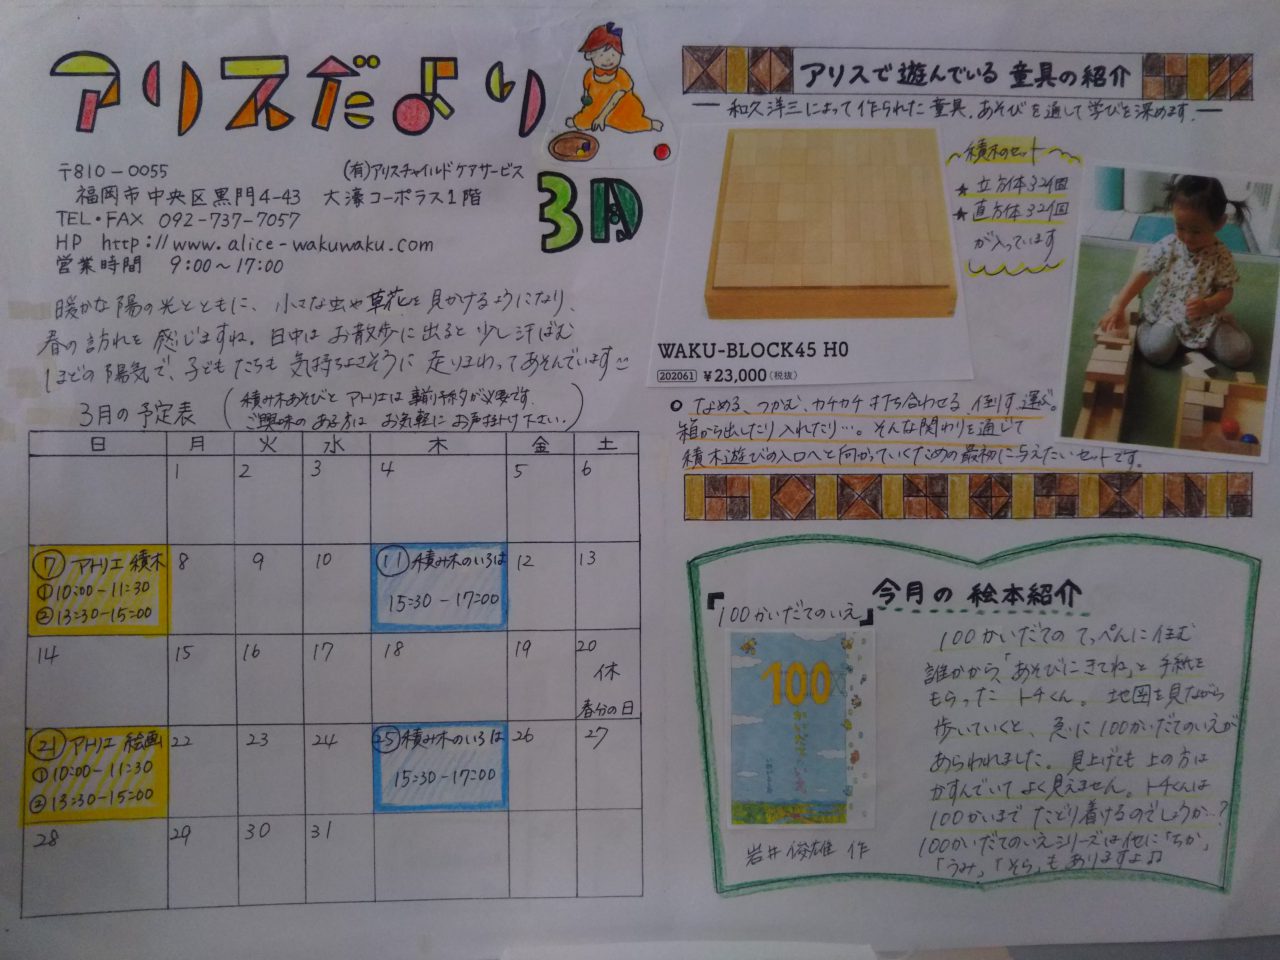 アリスだより
3月
〒810-0055 (有)アリスチャイルドケアサービス
福岡市中央区黒門4-43 大濠コーポラス1階
TEL・FAX 092-737-7057
HP http://www.alice-wakuwaku.com
営業時間 9:00〜17:00
暖かな陽の光とともに、小さな虫や草花を見かけるようになり、
春の訪れを感じますね。日中はお散歩に出ると少し汗ばむ
ほどの陽気で、子どもたちも気持ちよさそうに走りまわってあそんでいます
3月の予定表
(積み木あそびとアトリエは事前予約が必要です。
ご興味のある方はお気軽にお声掛け下さい…)
日 月 火 水 木 金 土
1 2 3 4 5 6
⑦ アトリエ 積木 8 9 10 ⑪ 積み木のいろは 12 13
①10:00-11:30
②13:30-15:00
15:30-17:00
14 15 16 17 18 19 20
休
春分の日
㉑ アトリエ 絵画 22 23 24 ㉕ 積み木のいろは 26 27
①10:00-11:30
②13:30-15:00
15:30-17:00
28 29 30 31
アリスで遊んでいる童具の紹介
― 和久洋三によって作られた童具。あそびを通して学びを深めます。―
積木のセット
★立方体32個
★直方体32個
が入っています
WAKU-BLOCK45 H0
202061 ¥23,000(税抜)
○ なめる、つかむ、カチカチ打ち合わせる、倒す、運ぶ。
箱から出したり入れたり…。そんな関わりを通じて
積木遊びの入口へと向かっていくための最初に与えたいセットです。
今月の絵本紹介
『100かいだてのいえ』
100
かいだてのいえ
岩井俊雄 作
100かいだてのてっぺんに住む
誰かから、「あそびにきてね」と手紙を
もらったトチくん。地図を見ながら
歩いていくと、急に100かいだてのいえが
あらわれました。見上げても上の方は
かすんでいてよく見えません。トチくんは
100かいまでたどり着けるのでしょうか…?
100かいだてのいえシリーズは他に「ちか」、
「うみ」、「そら」もありますよ♫